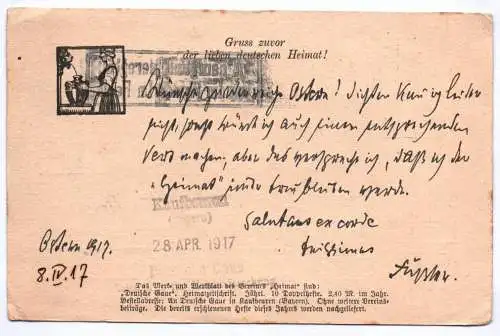 Gruss zuvor
der lieben deutschen Heimat!
Wünsche zuvor reiche Ostern! Dichten kann ich leider
nicht, sonst würde ich auch einen entsprechenden
Vers machen, aber das verspreche ich, daß ich der
"Heimat" treu bleiben werde.
Salutans ex corde
Ostern 1917.
8. IV. 17
Kaufbeuren
28 APR. 1917
Das Werk- und Werkblatt des Vereines "Heimat" sind:
"Deutsche Gaue", Heimatzeitschrift. Jährl. 10 Doppelhefte. 2,40 M. im Jahr.
Bestelladresse: An Deutsche Gaue in Kaufbeuren (Bayern). Ohne weitere Vereins-
beiträge. Die bereits erschienenen Hefte dieses Jahres werden nachgeliefert.